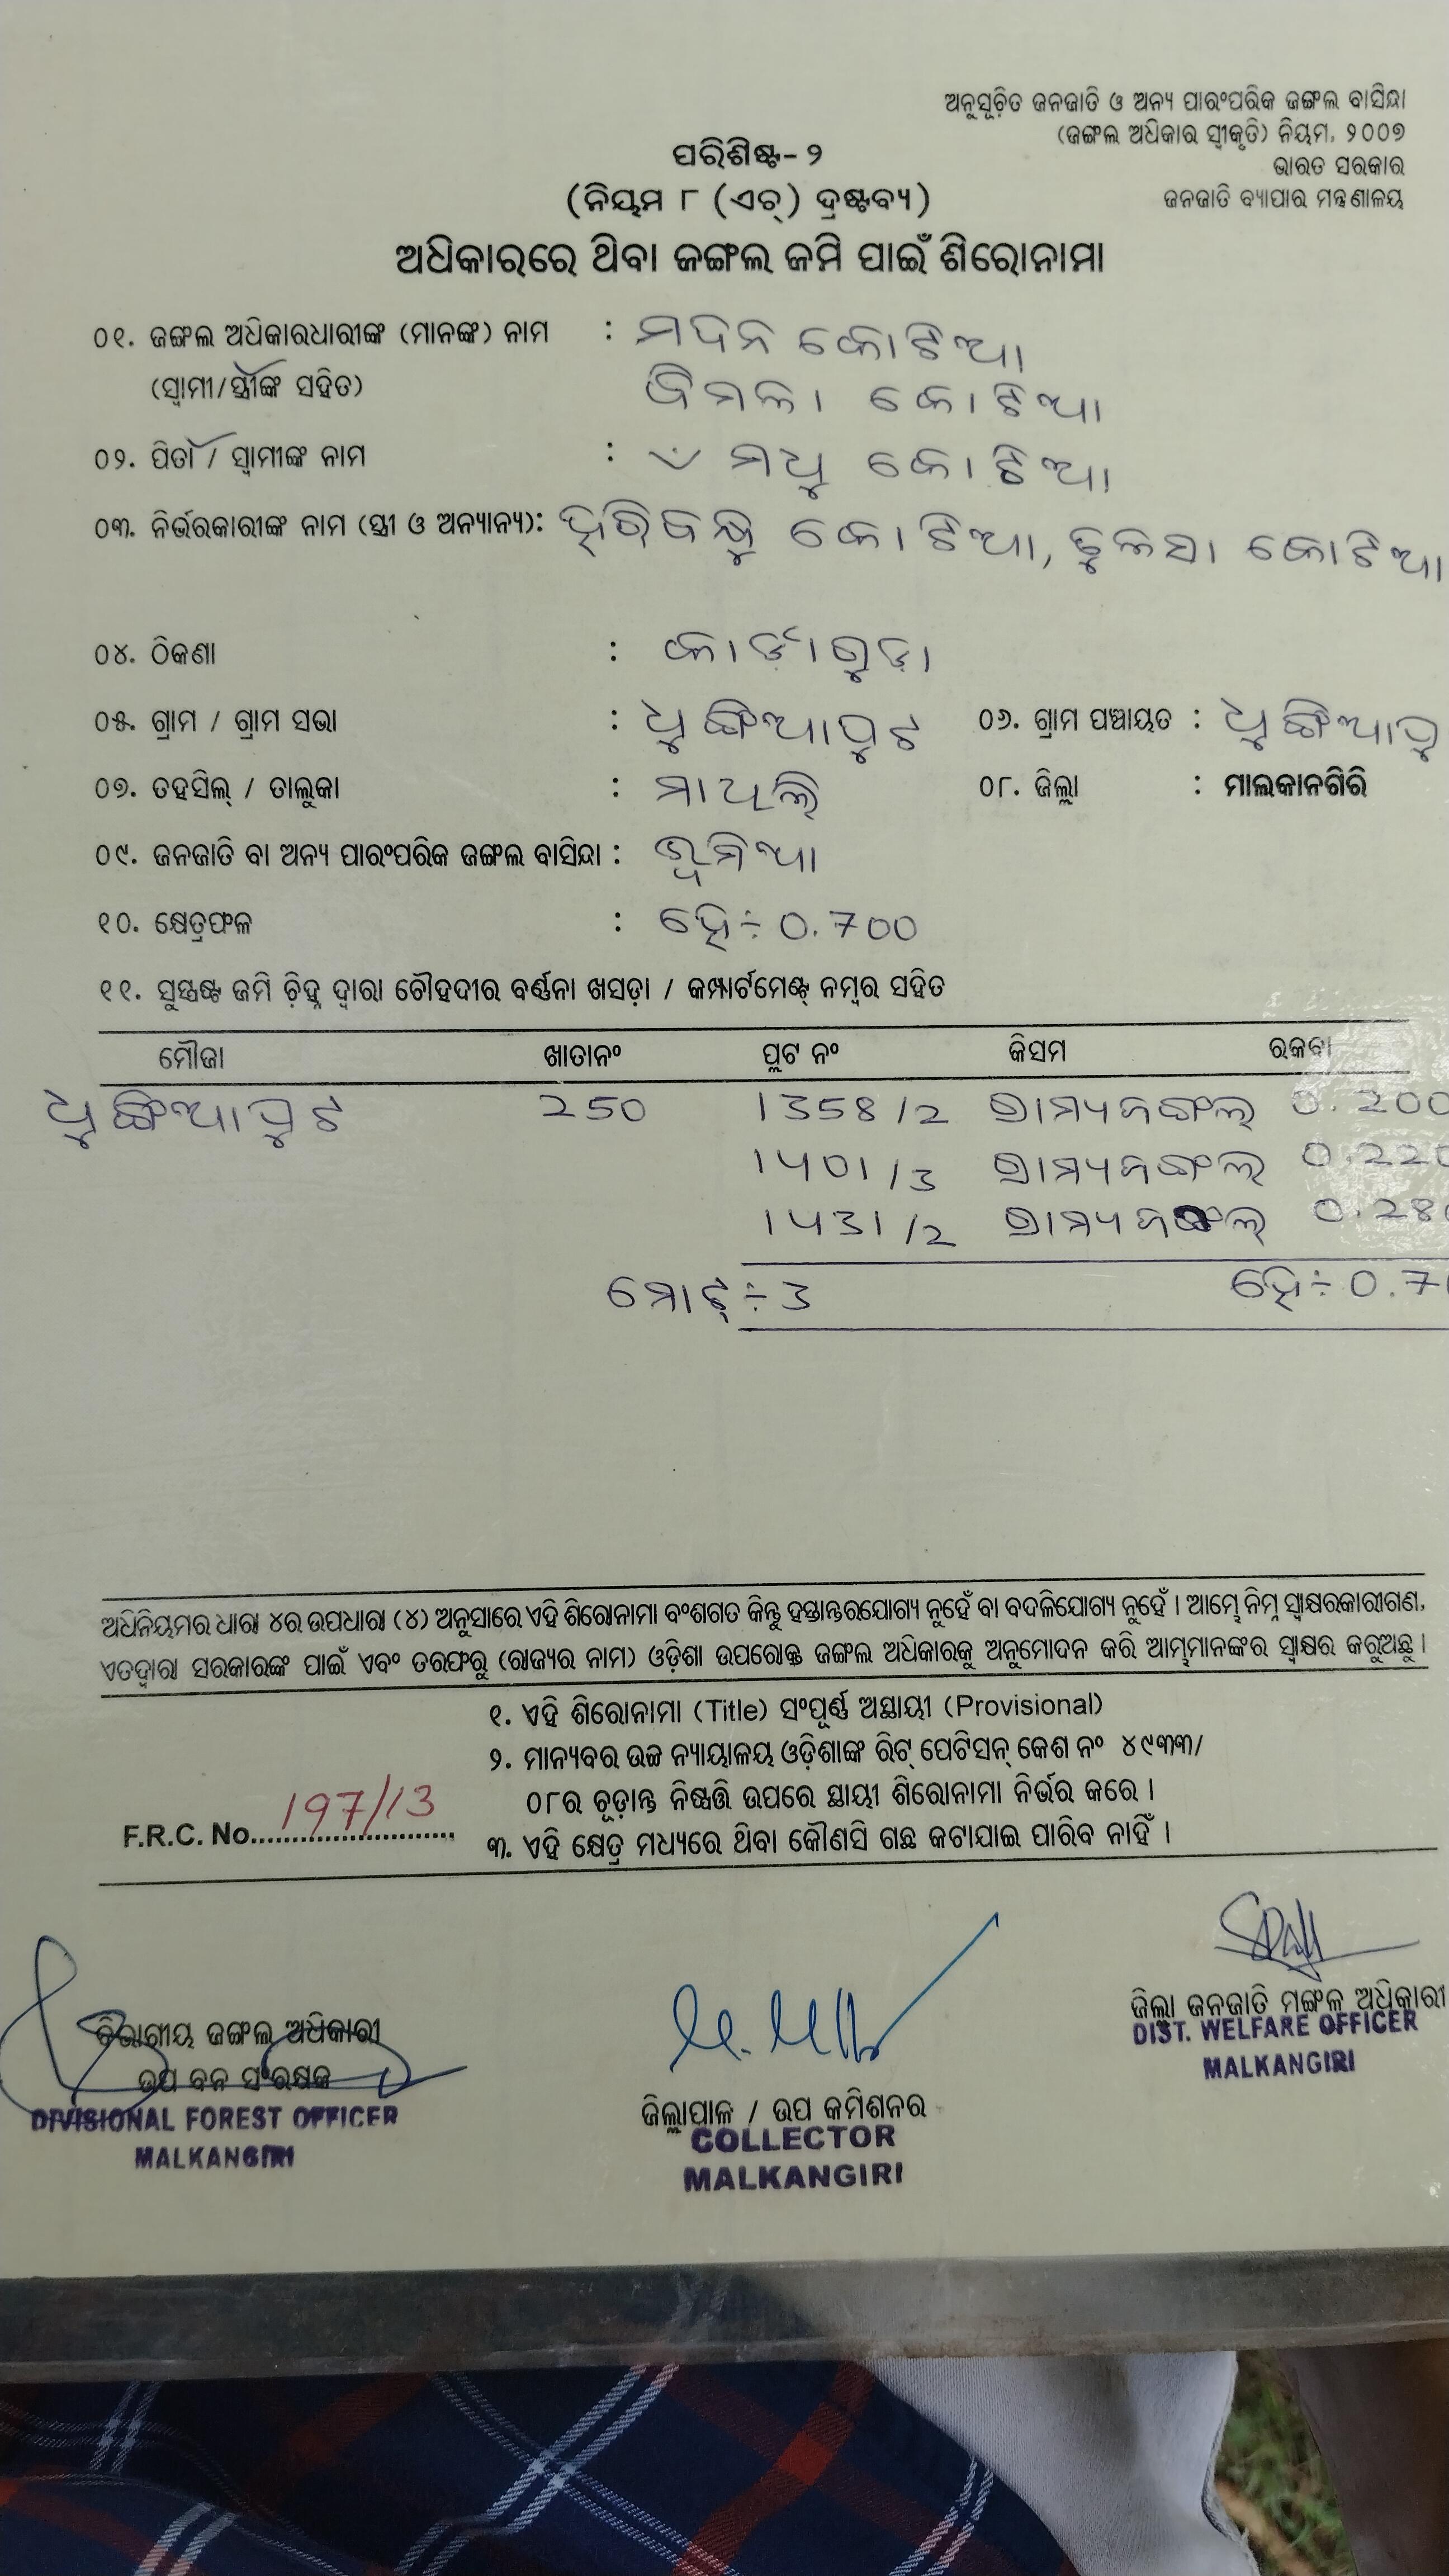 ଅନୁସୂଚିତ ଜନଜାତି ଓ ଅନ୍ୟ ପାରଂପରିକ ଜଙ୍ଗଲ ବାସିନ୍ଦା
(ଜଙ୍ଗଲ ଅଧିକାର ସ୍ୱୀକୃତି) ନିୟମ, ୨୦୦୭
ଭାରତ ସରକାର
ଜନଜାତି ବ୍ୟାପାର ମନ୍ତ୍ରଣାଳୟ
ପରିଶିଷ୍ଟ-୨
(ନିୟମ ୮ (ଏଚ୍) ଦ୍ରଷ୍ଟବ୍ୟ)
ଅଧିକାରରେ ଥିବା ଜଙ୍ଗଲ ଜମି ପାଇଁ ଶିରୋନାମା
୦୧. ଜଙ୍ଗଲ ଅଧିକାରଧାରୀଙ୍କ (ମାନଙ୍କ) ନାମ : ମଦନ କୋଟିଆ
(ସ୍ୱାମୀ/ସ୍ତ୍ରୀଙ୍କ ସହିତ) ବିମଳା କୋଟିଆ
୦୨. ପିତା / ସ୍ୱାମୀଙ୍କ ନାମ : ମଧୁ କୋଟିଆ
୦୩. ନିର୍ଭରକାରୀଙ୍କ ନାମ (ସ୍ତ୍ରୀ ଓ ଅନ୍ୟାନ୍ୟ): ହରିବନ୍ଧୁ କୋଟିଆ, ତୁଳସା କୋଟିଆ
୦୪. ଠିକଣା :
୦୫. ଗ୍ରାମ / ଗ୍ରାମ ସଭା : ଧୁଙ୍ଗିଆପୁଟ ୦୬. ଗ୍ରାମ ପଞ୍ଚାୟତ : ଧୁଙ୍ଗିଆପୁ
୦୭. ତହସିଲ୍ / ତାଲୁକା : ମାଥିଲି ୦୮. ଜିଲ୍ଲା : ମାଲକାନଗିରି
୦୯. ଜନଜାତି ବା ଅନ୍ୟ ପାରଂପରିକ ଜଙ୍ଗଲ ବାସିନ୍ଦା : ଭୂମିଆ
୧୦. କ୍ଷେତ୍ରଫଳ : ହେ÷ 0.700
୧୧. ସୁସ୍ପଷ୍ଟ ଜମି ଚିହ୍ନ ଦ୍ୱାରା ଚୌହଦୀର ବର୍ଣ୍ଣନା ଖସଡ଼ା / କମ୍ପାର୍ଟମେଣ୍ଟ୍ ନମ୍ବର ସହିତ
ମୌଜା ଖାତାନଂ ପ୍ଲଟ ନଂ କିସମ ରକବା
ଧୁଙ୍ଗିଆପୁଟ 250 1358/2 ଗ୍ରାମ୍ୟଜଙ୍ଗଲ 0.200
1401/3 ଗ୍ରାମ୍ୟଜଙ୍ଗଲ 0.220
1431/2 ଗ୍ରାମ୍ୟଜଙ୍ଗଲ 0.280
ମୋଟ୍ ÷ 3 ହେ÷ 0.7
ଅଧିନିୟମର ଧାରା ୪ର ଉପଧାରା (୪) ଅନୁସାରେ ଏହି ଶିରୋନାମା ବଂଶଗତ କିନ୍ତୁ ହସ୍ତାନ୍ତରଯୋଗ୍ୟ ନୁହେଁ ବା ବଦଳିଯୋଗ୍ୟ ନୁହେଁ । ଆମ୍ଭେ ନିମ୍ନ ସ୍ୱାକ୍ଷରକାରୀଗଣ,
ଏତଦ୍ୱାରା ସରକାରଙ୍କ ପାଇଁ ଏବଂ ତରଫରୁ (ରାଜ୍ୟର ନାମ) ଓଡ଼ିଶା ଉପରୋକ୍ତ ଜଙ୍ଗଲ ଅଧିକାରକୁ ଅନୁମୋଦନ କରି ଆମ୍ଭମାନଙ୍କର ସ୍ୱାକ୍ଷର କରୁଅଛୁ ।
୧. ଏହି ଶିରୋନାମା (Title) ସଂପୂର୍ଣ୍ଣ ଅସ୍ଥାୟୀ (Provisional)
୨. ମାନ୍ୟବର ଉଚ୍ଚ ନ୍ୟାୟାଳୟ ଓଡ଼ିଶାଙ୍କ ରିଟ୍ ପେଟିସନ୍ କେଶ ନଂ ୪୯୩୩/
୦୮ର ଚୂଡ଼ାନ୍ତ ନିଷ୍ପତ୍ତି ଉପରେ ସ୍ଥାୟୀ ଶିରୋନାମା ନିର୍ଭର କରେ ।
F.R.C. No. 197/13
୩. ଏହି କ୍ଷେତ୍ର ମଧ୍ୟରେ ଥିବା କୌଣସି ଗଛ କଟାଯାଇ ପାରିବ ନାହିଁ ।
ବିଭାଗୀୟ ଜଙ୍ଗଲ ଅଧିକାରୀ
ଉପ ବନ ସଂରକ୍ଷକ
DIVISIONAL FOREST OFFICER
MALKANGIRI
ଜିଲ୍ଲାପାଳ / ଉପ କମିଶନର
COLLECTOR
MALKANGIRI
ଜିଲ୍ଲା ଜନଜାତି ମଙ୍ଗଳ ଅଧିକାରୀ
DIST. WELFARE OFFICER
MALKANGIRI